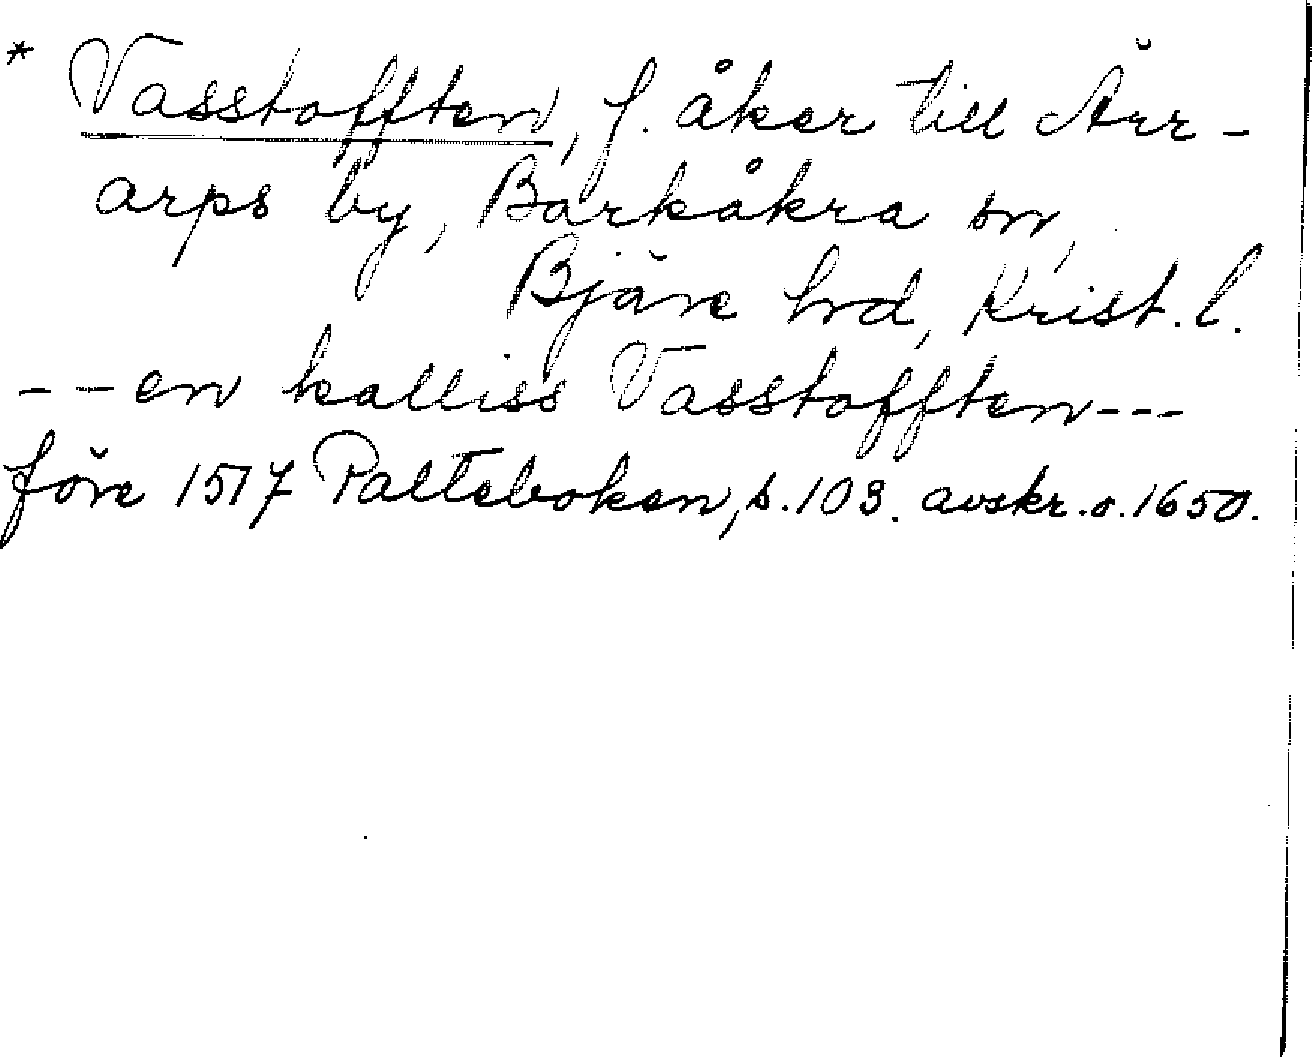 * Vasstofften, f. åker till Ärr-
arps by, Barkåkra sn,
Bjäre hrd, Krist. l.
-- en kalliss Vasstofften ---
före 1517 Palteboken, s. 108. avskr. o. 1650.